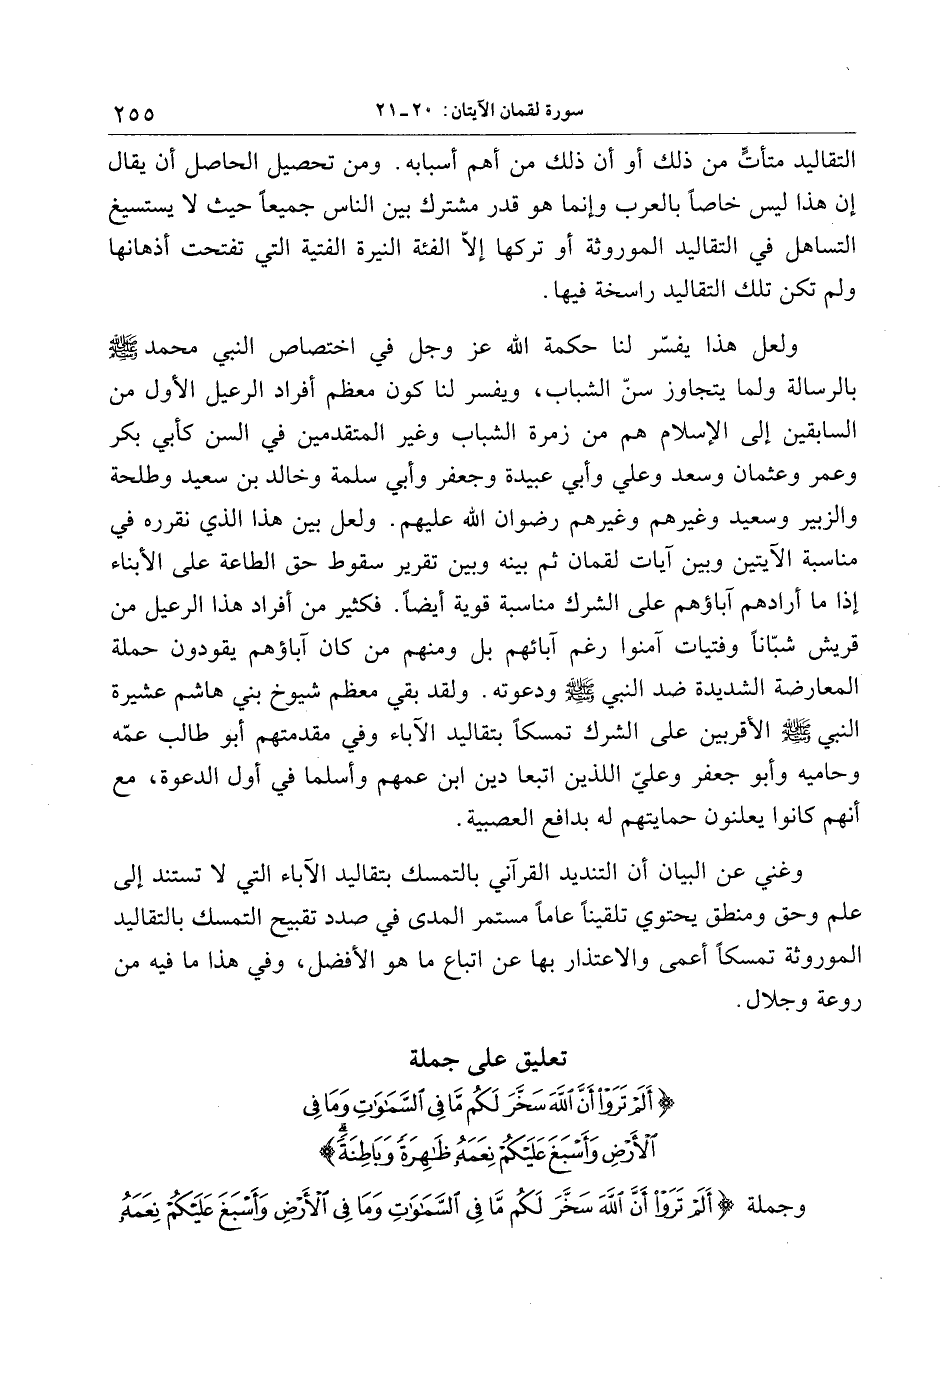 سورة لقمان الآيتان: ٢٠ـ٢١ ٢٥٥
التقاليد متأتٍّ من ذلك أو أن ذلك من أهم أسبابه. ومن تحصيل الحاصل أن يقال
إن هذا ليس خاصاً بالعرب وإنما هو قدر مشترك بين الناس جميعاً حيث لا يستسيغ
التساهل في التقاليد الموروثة أو تركها إلاّ الفئة النيرة الفتية التي تفتحت أذهانها
ولم تكن تلك التقاليد راسخة فيها.
ولعل هذا يفسّر لنا حكمة الله عز وجل في اختصاص النبي محمد ﷺ
بالرسالة ولما يتجاوز سنّ الشباب، ويفسر لنا كون معظم أفراد الرعيل الأول من
السابقين إلى الإسلام هم من زمرة الشباب وغير المتقدمين في السن كأبي بكر
وعمر وعثمان وسعد وعلي وأبي عبيدة وجعفر وأبي سلمة وخالد بن سعيد وطلحة
والزبير وسعيد وغيرهم وغيرهم رضوان الله عليهم. ولعل بين هذا الذي نقرره في
مناسبة الآيتين وبين آيات لقمان ثم بينه وبين تقرير سقوط حق الطاعة على الأبناء
إذا ما أرادهم آباؤهم على الشرك مناسبة قوية أيضاً. فكثير من أفراد هذا الرعيل من
قريش شبّاناً وفتيات آمنوا رغم آبائهم بل ومنهم من كان آباؤهم يقودون حملة
المعارضة الشديدة ضد النبي ﷺ ودعوته. ولقد بقي معظم شيوخ بني هاشم عشيرة
النبي ﷺ الأقربين على الشرك تمسكاً بتقاليد الآباء وفي مقدمتهم أبو طالب عمّه
وحاميه وأبو جعفر وعليّ اللذين اتبعا دين ابن عمهم وأسلما في أول الدعوة، مع
أنهم كانوا يعلنون حمايتهم له بدافع العصبية.
وغني عن البيان أن التنديد القرآني بالتمسك بتقاليد الآباء التي لا تستند إلى
علم وحق ومنطق يحتوي تلقيناً عاماً مستمر المدى في صدد تقبيح التمسك بالتقاليد
الموروثة تمسكاً أعمى والاعتذار بها عن اتباع ما هو الأفضل، وفي هذا ما فيه من
روعة وجلال.
تعليق على جملة
﴿أَلَمْ تَرَوْا أَنَّ ٱللَّهَ سَخَّرَ لَكُم مَّا فِى ٱلسَّمَـٰوَٰتِ وَمَا فِى
ٱلْأَرْضِ وَأَسْبَغَ عَلَيْكُمْ نِعَمَهُۥ ظَـٰهِرَةً وَبَاطِنَةً ۗ﴾
وجملة ﴿أَلَمْ تَرَوْا أَنَّ ٱللَّهَ سَخَّرَ لَكُم مَّا فِى ٱلسَّمَـٰوَٰتِ وَمَا فِى ٱلْأَرْضِ وَأَسْبَغَ عَلَيْكُمْ نِعَمَهُۥ